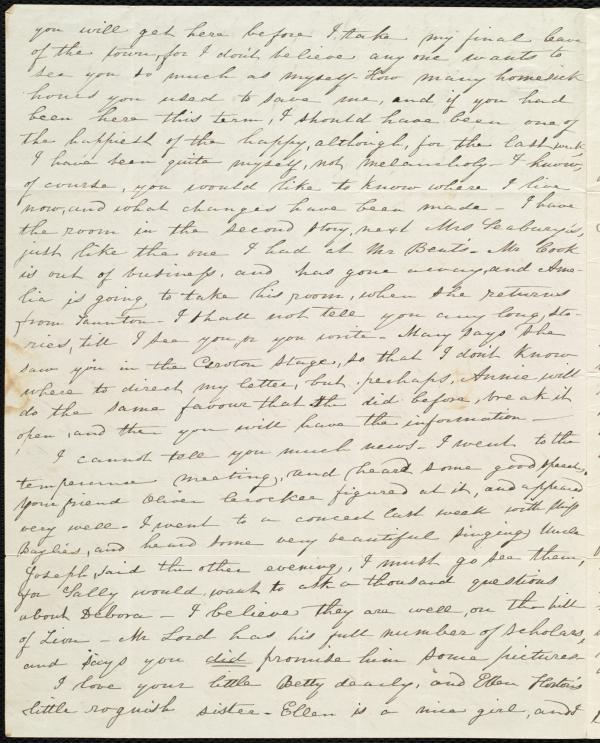 you will get here before I take my final leave
of the town, for I don't believe any one wants to
see you so much as myself. How many homesick
hours you used to save me, and if you had
been here this term, I should have been one of
the happiest of the happy, although, for the last week
I have been quite myself, not melancholy - I know,
of course, you would like to know where I live
now, and what changes have been made - I have
the room in the second story, next Mrs Seabury's,
just like the one I had at Mr Bent's. Mr Cook
is out of business, and has gone away, and Ame-
lia is going to take his room, when she returns
from Taunton - I shall not tell you any long sto-
ries, till I see you, or you write - Mary says she
saw you in the Croton stage, so that I don't know
where to direct my letter, but perhaps, Annie will
do the same favour that she did before, break it
open, and then you will have the information -
I cannot tell you much news - I went to the
temperance meeting, and heard some good speech.
Your friend Oliver Crocker figured at it, and appeared
very well - I went to a concert last week with Miss
Baylies, and heard some very beautiful singing. Uncle
Joseph, said the other evening, I must go see them,
for Sally would want to ask a thousand questions
about Debora - I believe they are well, on the hill
of Zion - Mr Lord has his full number of scholars,
and says you did promise him some pictures
I love your little Betty dearly, and Ellen
little roguish sister - Ellen is a nice girl, and